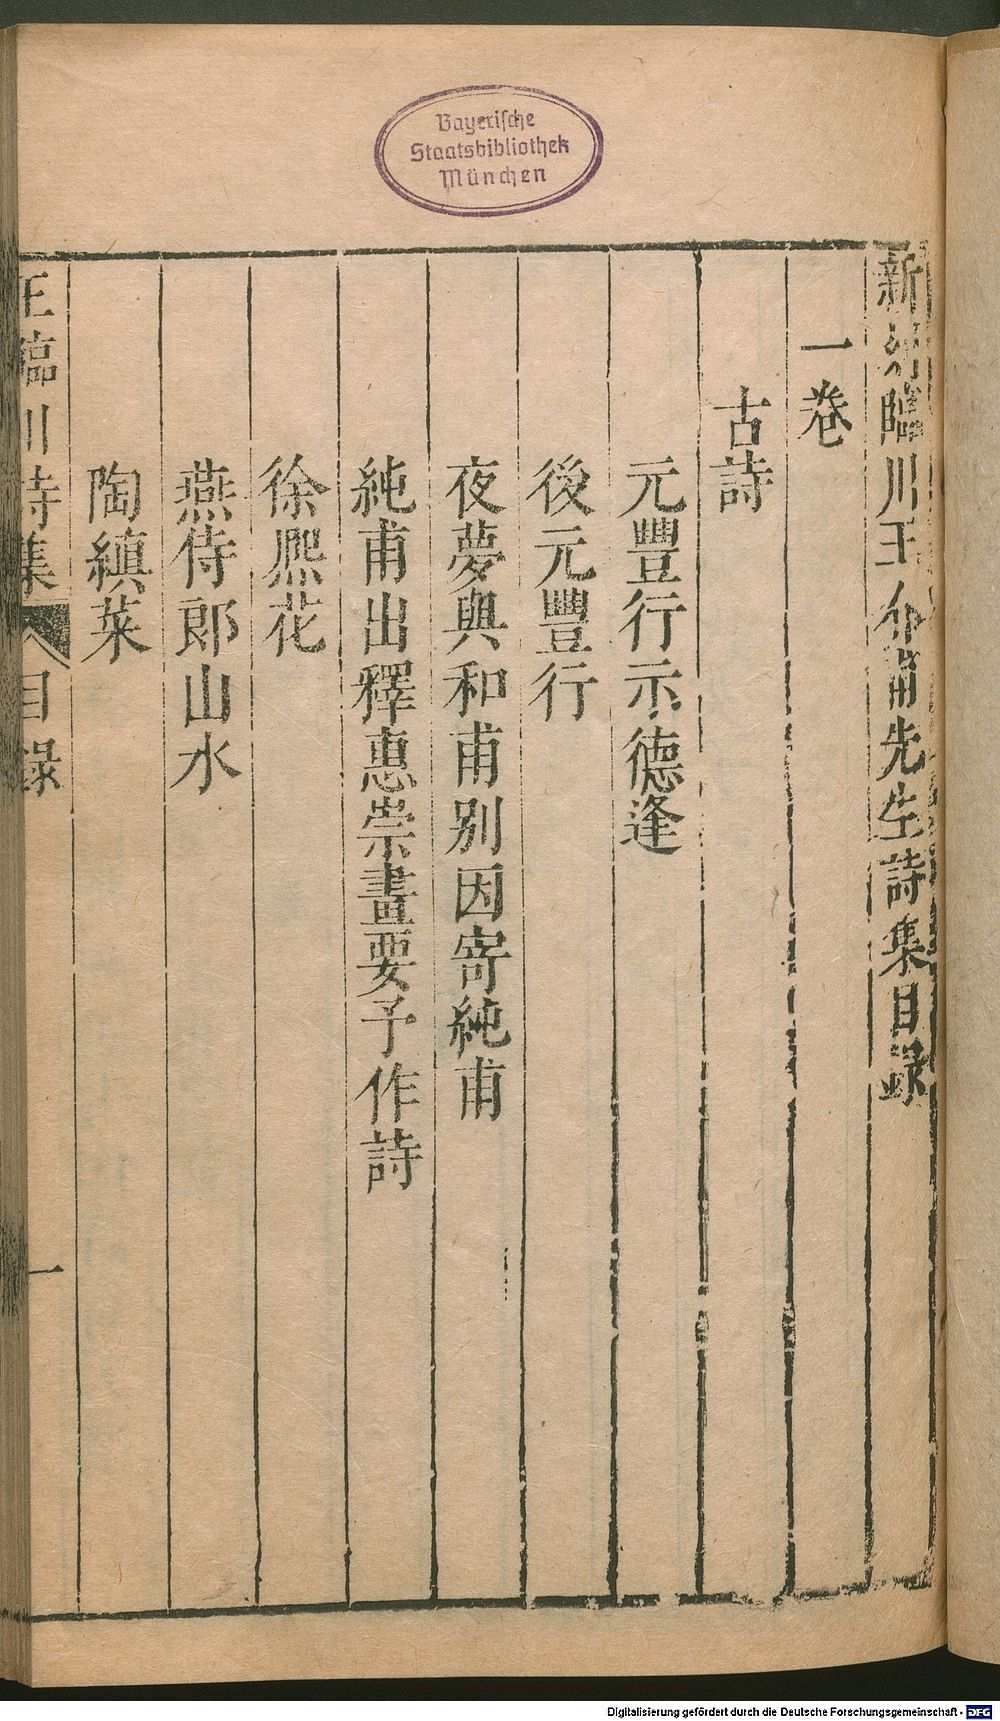 Bayerische
Staatsbibliothek
München
新刻臨川王介甫先生詩集目錄
一卷
古詩
元豐行示德逢
後元豐行
夜夢與和甫别因寄純甫
純甫出釋惠崇畫要予作詩
徐熈花
燕侍郎山水
陶縝菜
王臨川詩集 目錄 一
Digitalisierung gefördert durch die Deutsche Forschungsgemeinschaft - DFG